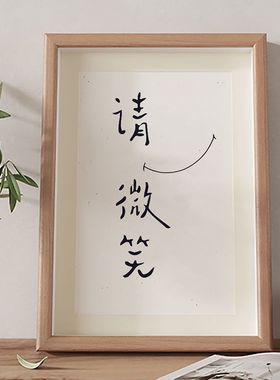 请
微
笑